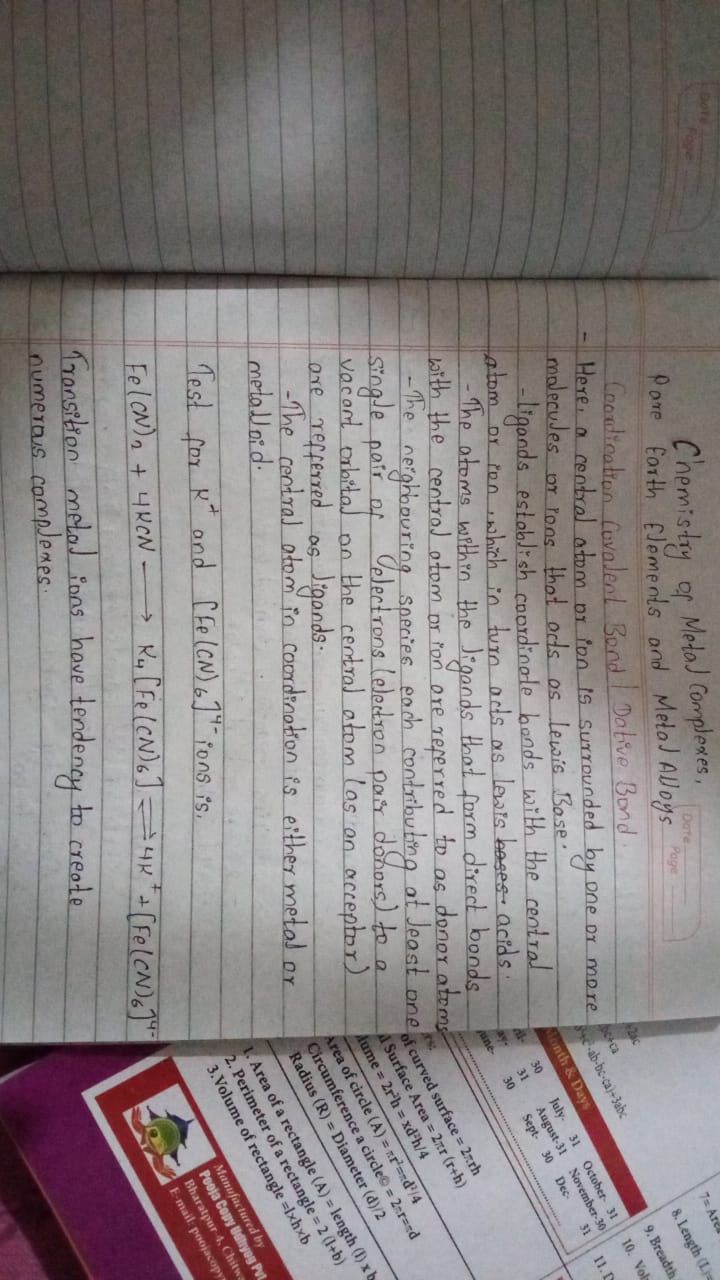 Date
Page
Chemistry of Metal Complexes,
Date
Page
Rare Earth Elements and Metal Alloys
Coordination Covalent Bond | Dative Bond.
- Here, a central atom or ion is surrounded by one or more
molecules or ions that acts as lewis Base.
- ligands establish coordinate bonds with the central
atom or ion, which in turn acts as lewis bases. acids.
- The atoms within the ligands that form direct bonds
with the central atom or ion are referred to as donor atoms
- The neighbouring species each contributing at least one
single pair of electrons (electron pair donors) to a
vacant orbital on the central atom (as an acceptor)
are refferred as ligands.
- The central atom in coordination is either metal or
metalloid.
Test for K⁺ and [Fe(CN)6]⁴⁻ ions is,
Fe(CN)₂ + 4KCN → K₄[Fe(CN)₆] ⇌ 4K⁺ + [Fe(CN)₆]⁴⁻
Transition metal ions have tendency to create
numerous complexes.
7= Area
8. Length (L)=
9. Breadth
10. Vol
11.
-ab-bc-ca)+3abc
Month & Days
30 July- 31 October- 31
31 August-31 November-30
30 Sept- 30 Dec- 31
of curved surface = 2πrh
Surface Area = 2πr (r+h)
lume = 2r²h = xd²h/4
Area of circle (A) = πr²=πd²/4
Circumference a circle© = 2πr=πd
Radius (R) = Diameter (d)/2
1. Area of a rectangle (A) = length (l) x b
2. Perimeter of a rectangle = 2 (l+b)
3. Volume of rectangle =l×h×b
Manufactured by
Pooja Copy Udhyog Pvt.
Bharatpur-4, Chitw
E-mail: poojacopy